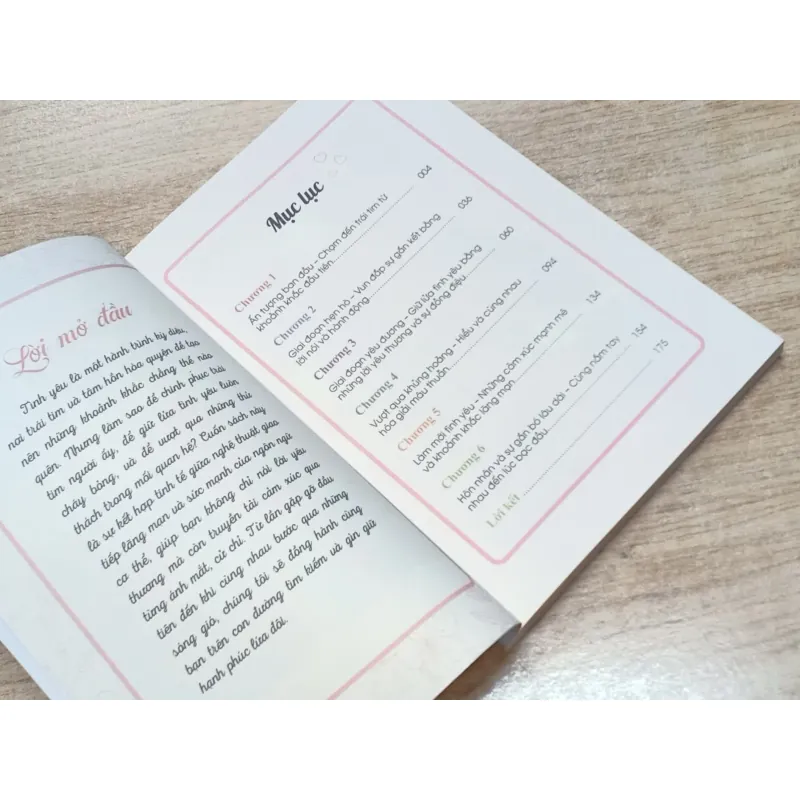 Lời mở đầu
Tình yêu là một hành trình kỳ diệu,
nơi trái tim và tâm hồn hòa quyện để tạo
nên những khoảnh khắc chẳng thể nào
quên. Nhưng làm sao để chinh phục trái
tim người ấy, để giữ lửa tình yêu luôn
cháy bỏng, và để vượt qua những thử
thách trong mối quan hệ? Cuốn sách này
là sự kết hợp tinh tế giữa nghệ thuật giao
tiếp lãng mạn và sức mạnh của ngôn ngữ
cơ thể, giúp bạn không chỉ nói lời yêu
thương mà còn truyền tải cảm xúc qua
từng ánh mắt, cử chỉ. Từ lần gặp gỡ đầu
tiên đến khi cùng nhau bước qua những
sóng gió, chúng tôi sẽ đồng hành cùng
bạn trên con đường tìm kiếm và gìn giữ
hạnh phúc lứa đôi.
Mục lục
Chương 1
Ấn tượng ban đầu – Chạm đến trái tim từ
khoảnh khắc đầu tiên 004
Chương 2
Giai đoạn hẹn hò – Vun đắp sự gắn kết bằng
lời nói và hành động 036
Chương 3
Giai đoạn yêu đương – Giữ lửa tình yêu bằng
những lời yêu thương và sự đồng điệu 060
Chương 4
Vượt qua khủng hoảng – Hiểu và cùng nhau
hóa giải mâu thuẫn 094
Chương 5
Làm mới tình yêu – Những cảm xúc mạnh mẽ
và khoảnh khắc lãng mạn 134
Chương 6
Hôn nhân và sự gắn bó lâu dài – Cùng nắm tay
nhau đến lúc bạc đầu 154
Lời kết 175